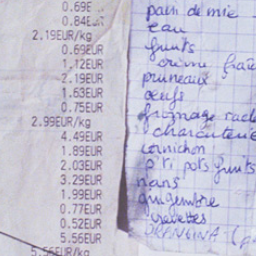 0.69E
0.84EUR
2.19EUR/kg
0.69EUR
1.12EUR
2.19EUR
1.63EUR
0.75EUR
2.99EUR/kg
4.49EUR
1.89EUR
2.03EUR
3.29EUR
1.99EUR
0.77EUR
0.52EUR
5.56EUR
5.56EUR/kg
pain de mie
eau
fruits
crème fraîc
pruneaux
oeufs
fromage racl
charcuterie
cornichon
p'ti pots fruits
nans
gingembre
crevettes
ORANGINA